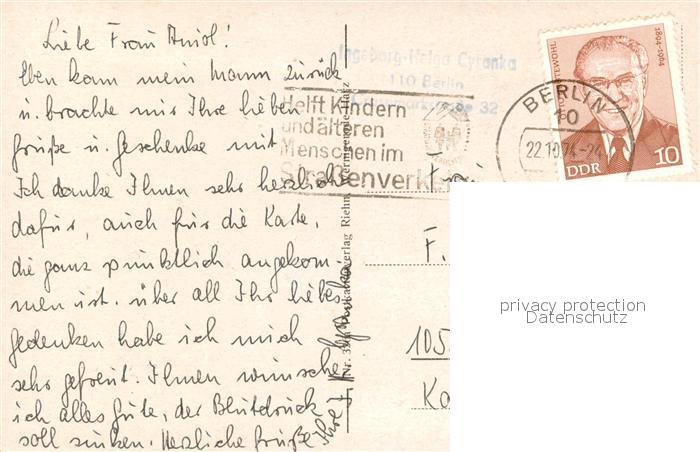 Liebe Frau Amol!
Eben kam mein Mann zurück
u. brachte mir Ihre lieben
Grüße u. Geschenke mit.
Ich danke Ihnen sehr herzlich
dafür, auch für die Karte,
die ganz pünktlich angekom-
men ist. über all Ihr liebes
gedenken habe ich mich
sehr gefreut. Ihnen wünsche
ich alles Gute, der Blutdruck
soll sinken. Herzliche Grüße
Ihre
Ingeborg-Helga Cyranka
110 Berlin
32
Helft Kindern
und älteren
Menschen im
Straßenverke
BERLIN
10
22.10.74-24
OTTO GROTEWOHL
1894-1964
DDR
10
verlag Riehn, Wernigerode-Harz
Nr.
Frau
F.
105
Ka
privacy protection
Datenschutz